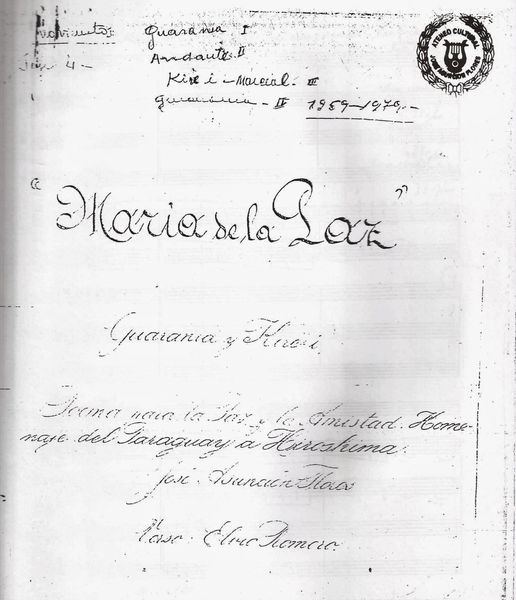 movimentos Guarania I
Son 4 -
Andante. II
Kire i - Marcial. III
guarania - IV 1969-1970.-
ATENEO CULTURAL
JOSE ASUNCION FLORES
"Maria de la Paz"
Guarania y Kirei
Poema para la Paz y la Amistad. Home-
naje del Paraguay a Hiroshima.
José. Asunción Flores
Verso. Elvio Romero.